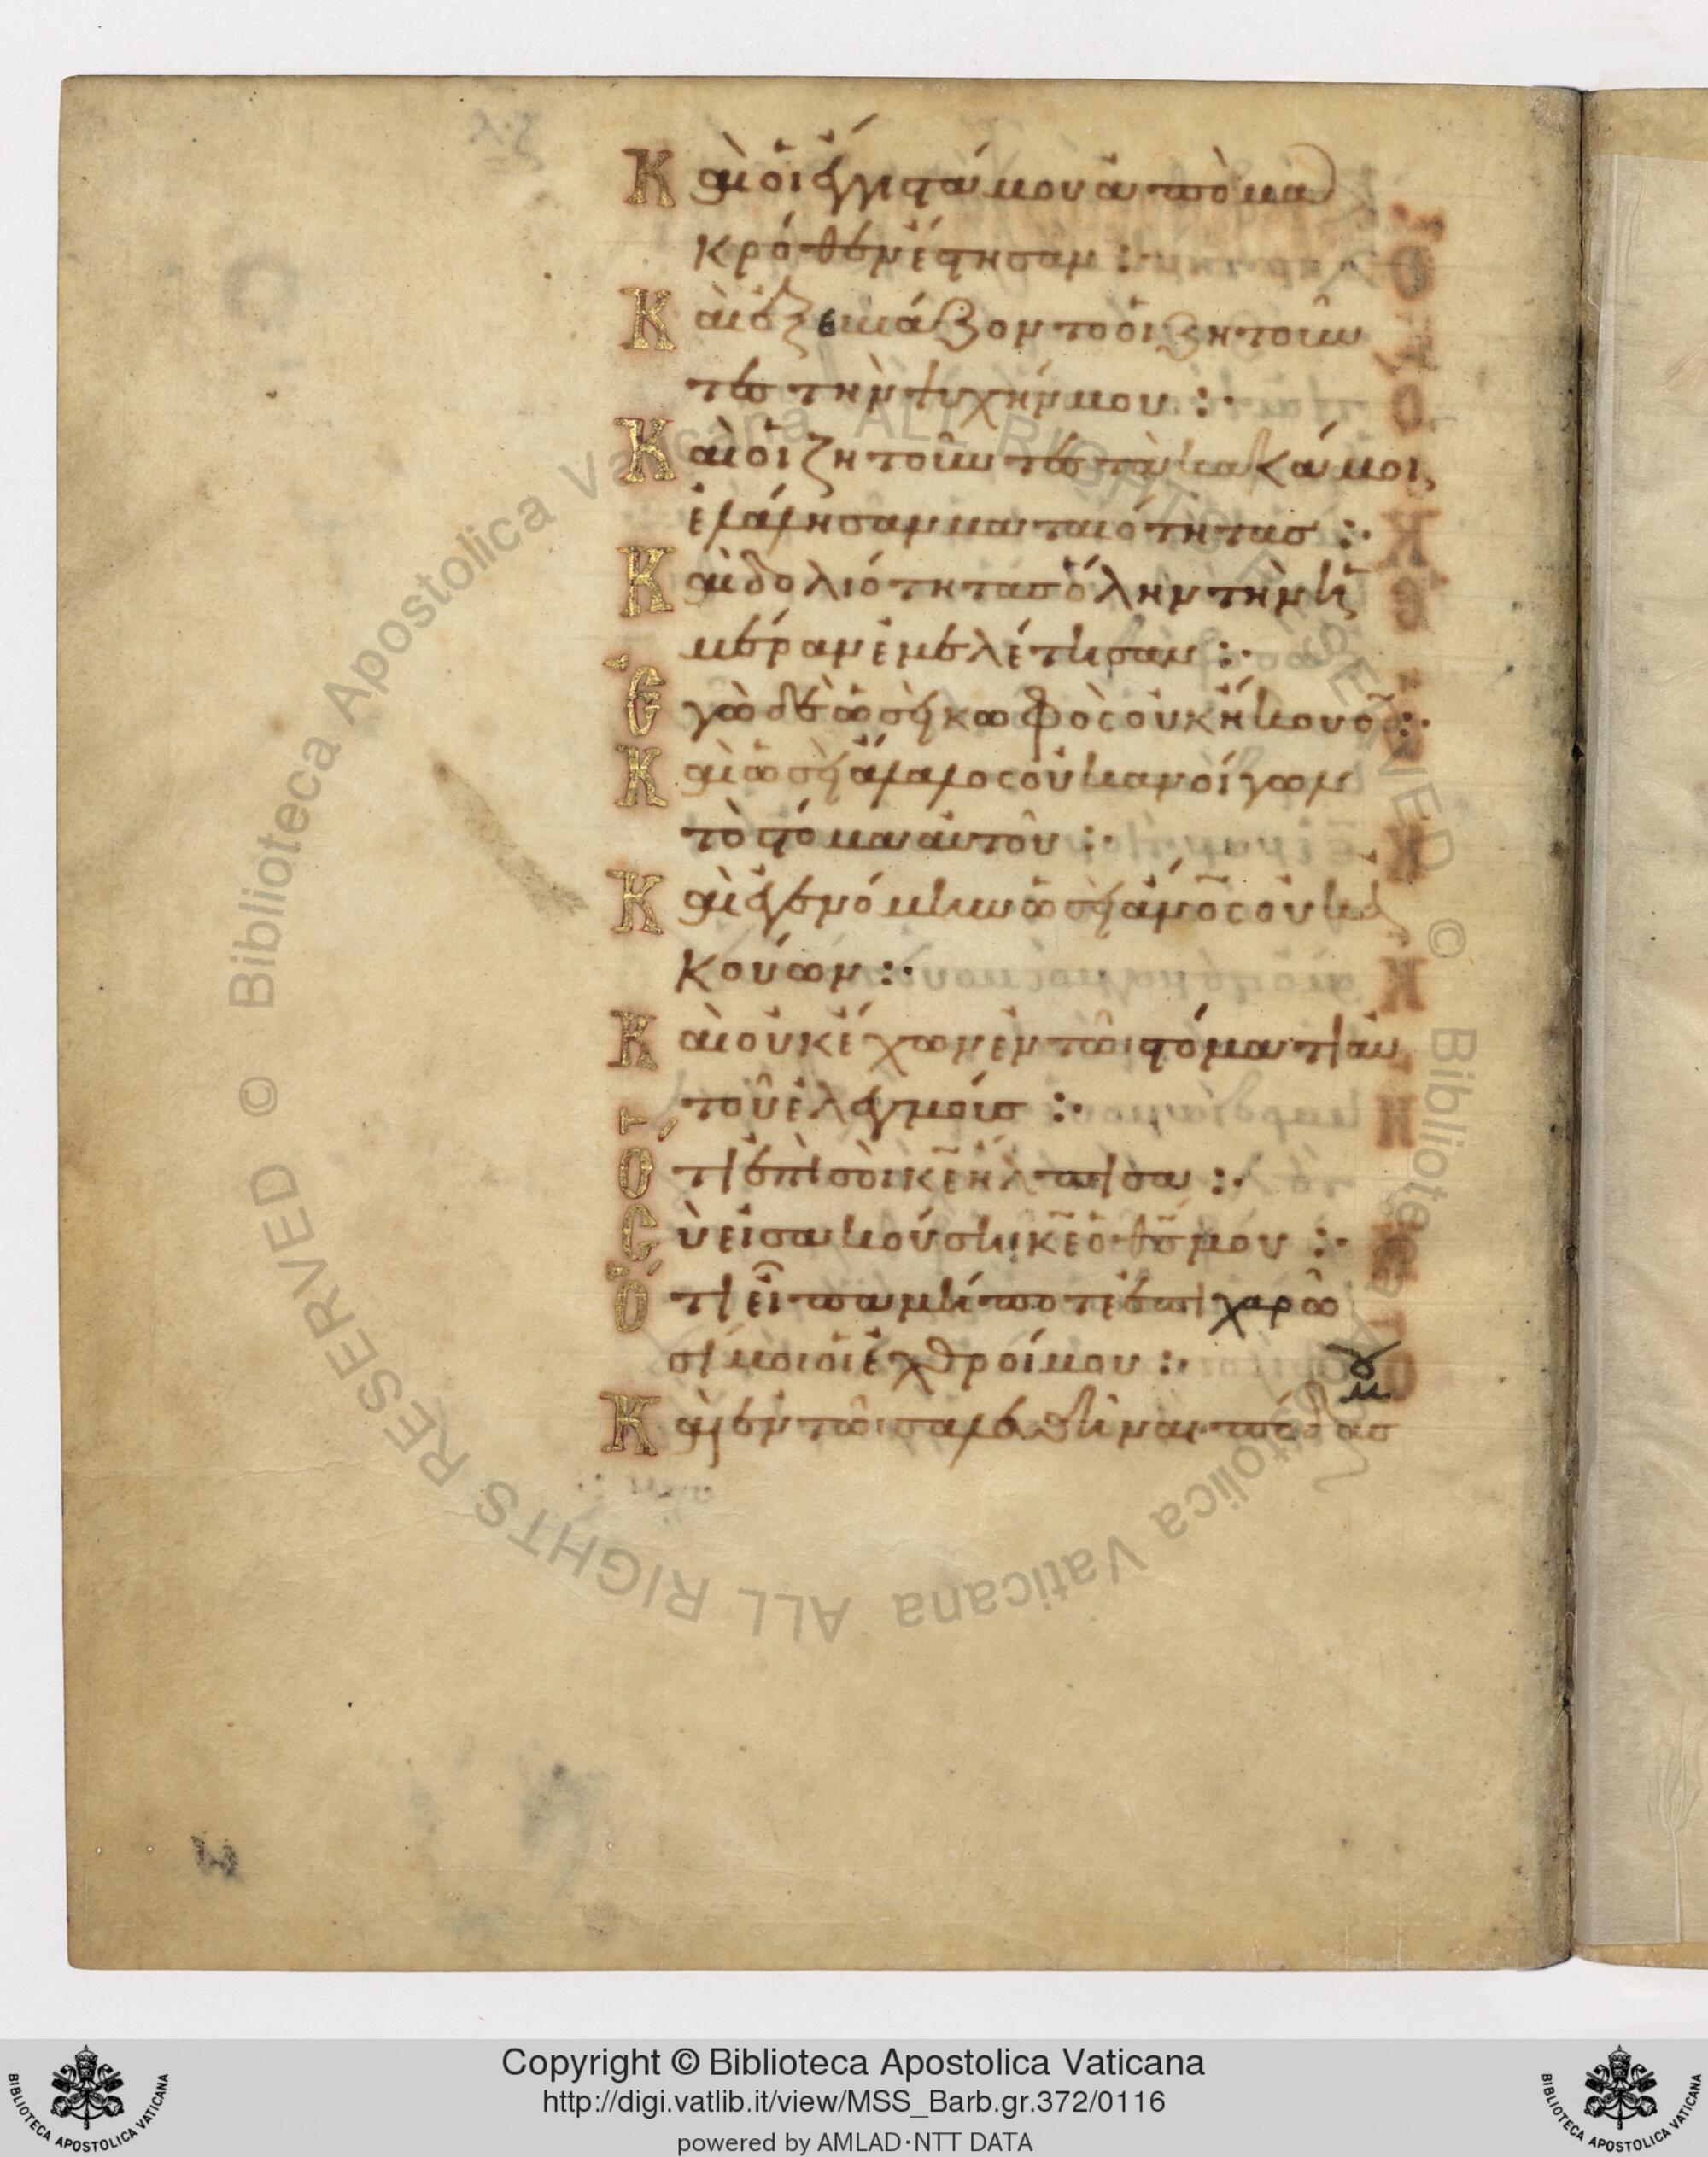 Καὶ οἱ ἔγγιστά μου ἀπὸ μα
κρόθεν ἔστησαν :·
Καὶ ἐξεβιάζοντο οἱ ζητοῦν
τεσ τὴν ψυχήν μου :·
Καὶ οἱ ζητοῦντεσ τὰ κακά μοι
ἐλάλησαν ματαιότητασ :·
Καὶ δολιότητασ ὅλην τὴν ἡ
μέραν ἐμελέτησαν :·
Ἐγὼ δὲ ὡσὴ κωφὸς οὐκ ἤκουον :·
Καὶ ὡσὴ ἄλαλος οὐκ ἀνοίγων
τὸ στόμα αὐτοῦ :·
Καὶ ἐγενόμην ὡσὴ ἄνος οὐκ ἀ
κούων :·
Καὶ οὐκ ἔχων ἐν τῶ στόματι αὐ
τοῦ ἐλεγμούσ :·
Ὅτι ἐπὶ σοὶ κε ἤλπισα :·
Σὺ εἰσακούση κε ὁ θσ μου :·
Ὅτι εἶπα μήποτε ἐπιχαρῶ
σί μοι οἱ ἐχθροί μου :·
Καὶ ἐν τῶ σαλευθῆναι πόδασ
μ
Copyright © Biblioteca Apostolica Vaticana
http://digi.vatlib.it/view/MSS_Barb.gr.372/0116
powered by AMLAD·NTT DATA
BIBLIOTECA APOSTOLICA VATICANA
BIBLIOTECA APOSTOLICA VATICANA
© Biblioteca Apostolica Vaticana ALL RIGHTS RESERVED © Biblioteca Apostolica Vaticana ALL RIGHTS RESERVED